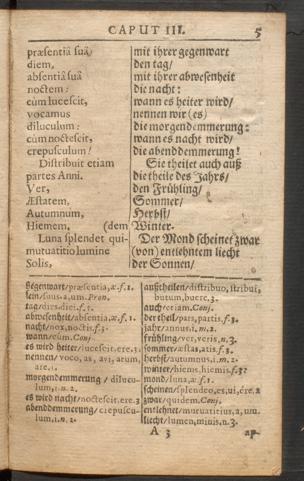 CAPUT III. 5
præsentiâ suâ,
diem,
absentiâ suâ
noctem:
cùm lucescit,
vocamus
diluculum:
cùm noctescit,
crepusculum!
Distribuit etiam
partes Anni.
Ver,
Æstatem,
Autumnum,
Hiemem, (dem
Luna splendet qui-
mutuatitio lumine
Solis,
mit ihrer gegenwart
den tag/
mit ihrer abwesenheit
die nacht:
wann es heiter wird/
nennen wir (es)
die morgendemmerung:
wann es nacht wird/
die abenddemmerung!
Sie theilet auch auß
die theile des Jahrs/
den Frühling/
Sommer/
Herbst/
Winter.
Der Mond scheinet zwar
(von) entlehntem liecht
der Sonnen/
Gegenwart/præsentia,æ.f.1.
sein/suus,a,um.Pron.
tag/dies,diei.f.5.
abwesenheit/absentia,æ.f.1.
nacht/nox,noctis.f.3.
wann/cùm.Conj.
es wird heiter/lucescit,ere.3.
nennen/voco,as,avi,atum,
are.1.
morgendemmerung/dilucu-
lum,i.n.2.
es wird nacht/noctescit,ere.3
abenddemmerung/crepuscu-
lum,i.n.2.
außtheilen/distribuo,stribui,
butum,buere.3.
auch/etiam.Conj.
der theil/pars,partis.f.3.
jahr/annus,i.m.2.
frühling/ver,veris,n.3.
sommer/æstas,atis.f.3.
herbst/autumnus,i.m.2.
winter/hiems,hiemis.f.3.
mond/luna,æ.f.1.
scheinen/splendeo,es,ui,ére.2
zwar/quidem.Conj.
entlehnet/mutuatitius,a,um.
liecht/lumen,minis,n.3.
A 3 ap-